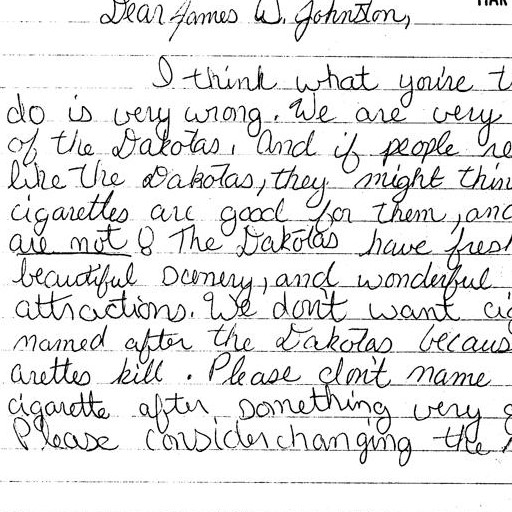 MAR
Dear James W. Johnston,
I think what you're t
do is very wrong. We are very
of the Dakotas. And if people re
like the Dakotas, they might thin
cigarettes are good for them, and
are not! The Dakotas have fres
beautiful scenery, and wonderful
attractions. We don't want cig
named after the Dakotas becaus
arettes kill. Please don't name
cigarette after something very g
Please consider changing the n